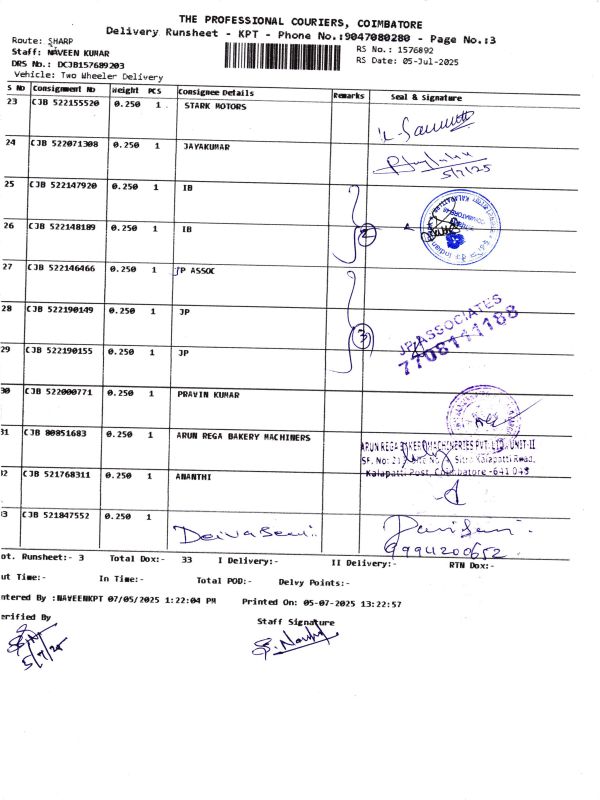 THE PROFESSIONAL COURIERS, COIMBATORE
Delivery Runsheet - KPT - Phone No.:9047080280 - Page No.:3
Route: SHARP
RS No.: 1576892
Staff: NAVEEN KUMAR
RS Date: 05-Jul-2025
DRS No.: DCJB157689203
Vehicle: Two Wheeler Delivery
S No Consignment No Weight PCS Consignee Details Remarks Seal & Signature
23 CJB 522155520 0.250 1 STARK MOTORS
24 CJB 522071308 0.250 1 JAYAKUMAR
5/7/25
25 CJB 522147920 0.250 1 IB
26 CJB 522148189 0.250 1 IB 2
27 CJB 522146466 0.250 1 JP ASSOC
28 CJB 522190149 0.250 1 JP
3
JP ASSOCIATES
7708111188
29 CJB 522190155 0.250 1 JP
30 CJB 522000771 0.250 1 PRAVIN KUMAR
31 CJB 80851683 0.250 1 ARUN REGA BAKERY MACHINERS
ARUN REGA BAKERY MACHINERIES PVT. LTD. UNIT-II
Kalapatti Road,
Kalapatti Post, Coimbatore -641 048
32 CJB 521768311 0.250 1 ANANTHI
33 CJB 521847552 0.250 1
9994200652
ot. Runsheet:- 3 Total Dox:- 33 I Delivery:- II Delivery:- RTN Dox:-
ut Time:- In Time:- Total POD:- Delvy Points:-
ntered By :NAVEENKPT 07/05/2025 1:22:04 PM Printed On: 05-07-2025 13:22:57
erified By Staff Signature
5/7/25